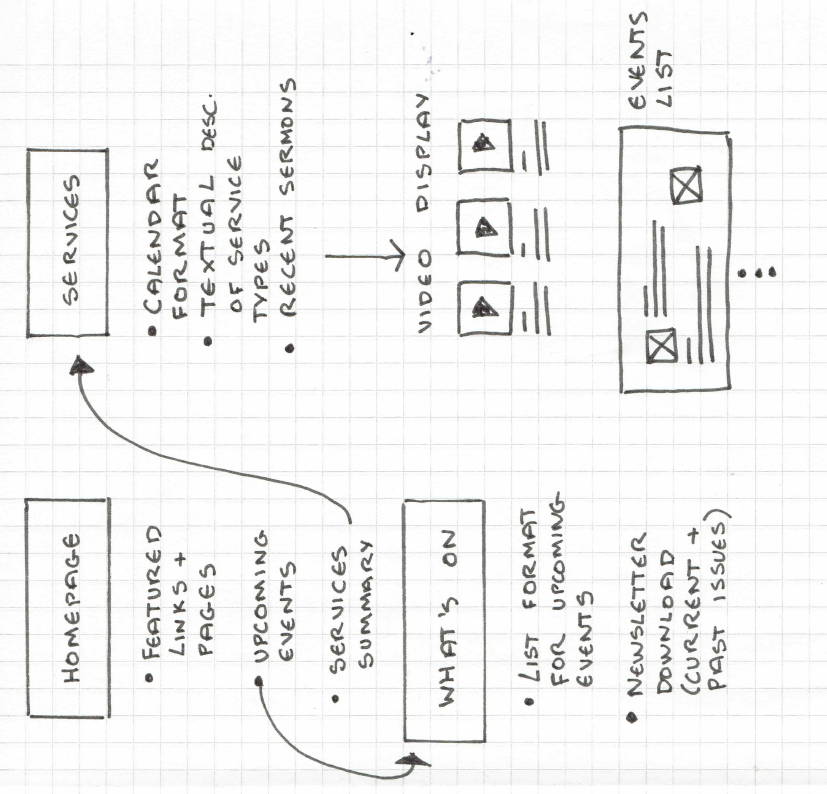 HOMEPAGE
• FEATURED
LINKS +
PAGES
• UPCOMING
EVENTS
• SERVICES
SUMMARY
WHAT'S ON
• LIST FORMAT
FOR UPCOMING
EVENTS
• NEWSLETTER
DOWNLOAD
(CURRENT +
PAST ISSUES)
SERVICES
• CALENDAR
FORMAT
• TEXTUAL DESC.
OF SERVICE
TYPES
• RECENT SERMONS
VIDEO DISPLAY
EVENTS
LIST